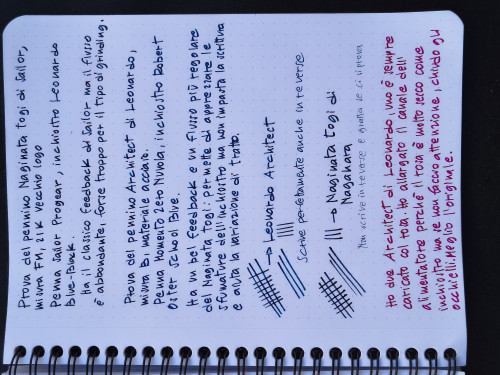 Prova del pennino Naginata togi di Sailor,
misura FM, 21K vecchio logo
Penna Sailor Progear, inchiostro Leonardo
Blue-Black.
Ha il classico feedback di Sailor ma il flusso
è abbondante, forse troppo per il tipo di grinding.
Prova del pennino Architect di Leonardo,
misura B, materiale acciaio.
Penna Momento Zero Nuvola, inchiostro Robert
Oster School Blue.
Ha un bel feedback e un flusso più regolare
del Naginata togi: permette di apprezzare le
sfumature dell'inchiostro ma non impasta la scrittura
e aiuta la variazione di tratto.
→ Leonardo Architect
Scrive perfettamente anche in reverse
→ Naginata togi di
Nagahara
Non scrive in reverse e gratta se ci si prova
Ho due Architect di Leonardo, uno è sempre
caricato col rosa. Ho allargato il canale dell'
alimentatore perché il rosa è molto secco come
inchiostro ma se non faccio attenzione, chiudo gli
occhielli. Meglio l'originale.